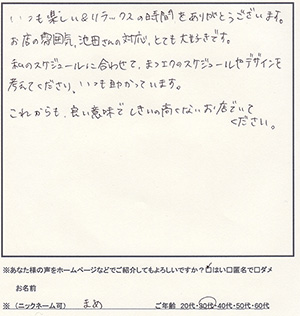 いつも楽しい&リラックスの時間をありがとうございます。
お店の雰囲気、池田さんの対応、とても大好きです。
私のスケジュールに合わせて、まつエクのスケジュールやデザインを
考えてくださり、いつも助かっています。
これからも、良い意味でしきいの高くないお店でいて
くださいね。
※あなた様の声をホームページなどでご紹介してもよろしいですか?☑はい□匿名で□ダメ
お名前
※(ニックネーム可) まめ ご年齢 20代・30代・40代・50代・60代